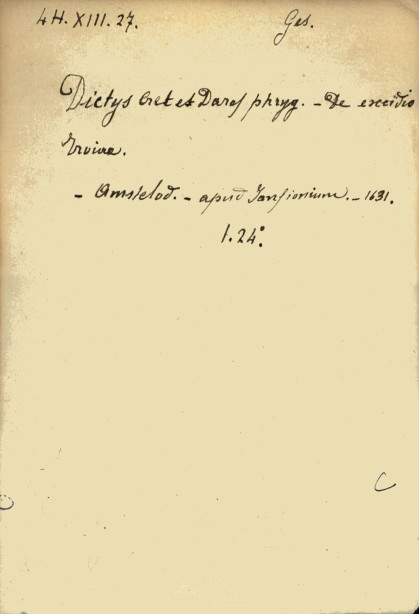 4H. XIII. 27. Ges.
Dictys Cret et Dares phryg. - De excidio
Troiae.
- Amstelod. - apud Jansionium. - 1631.
1. 24°.
C